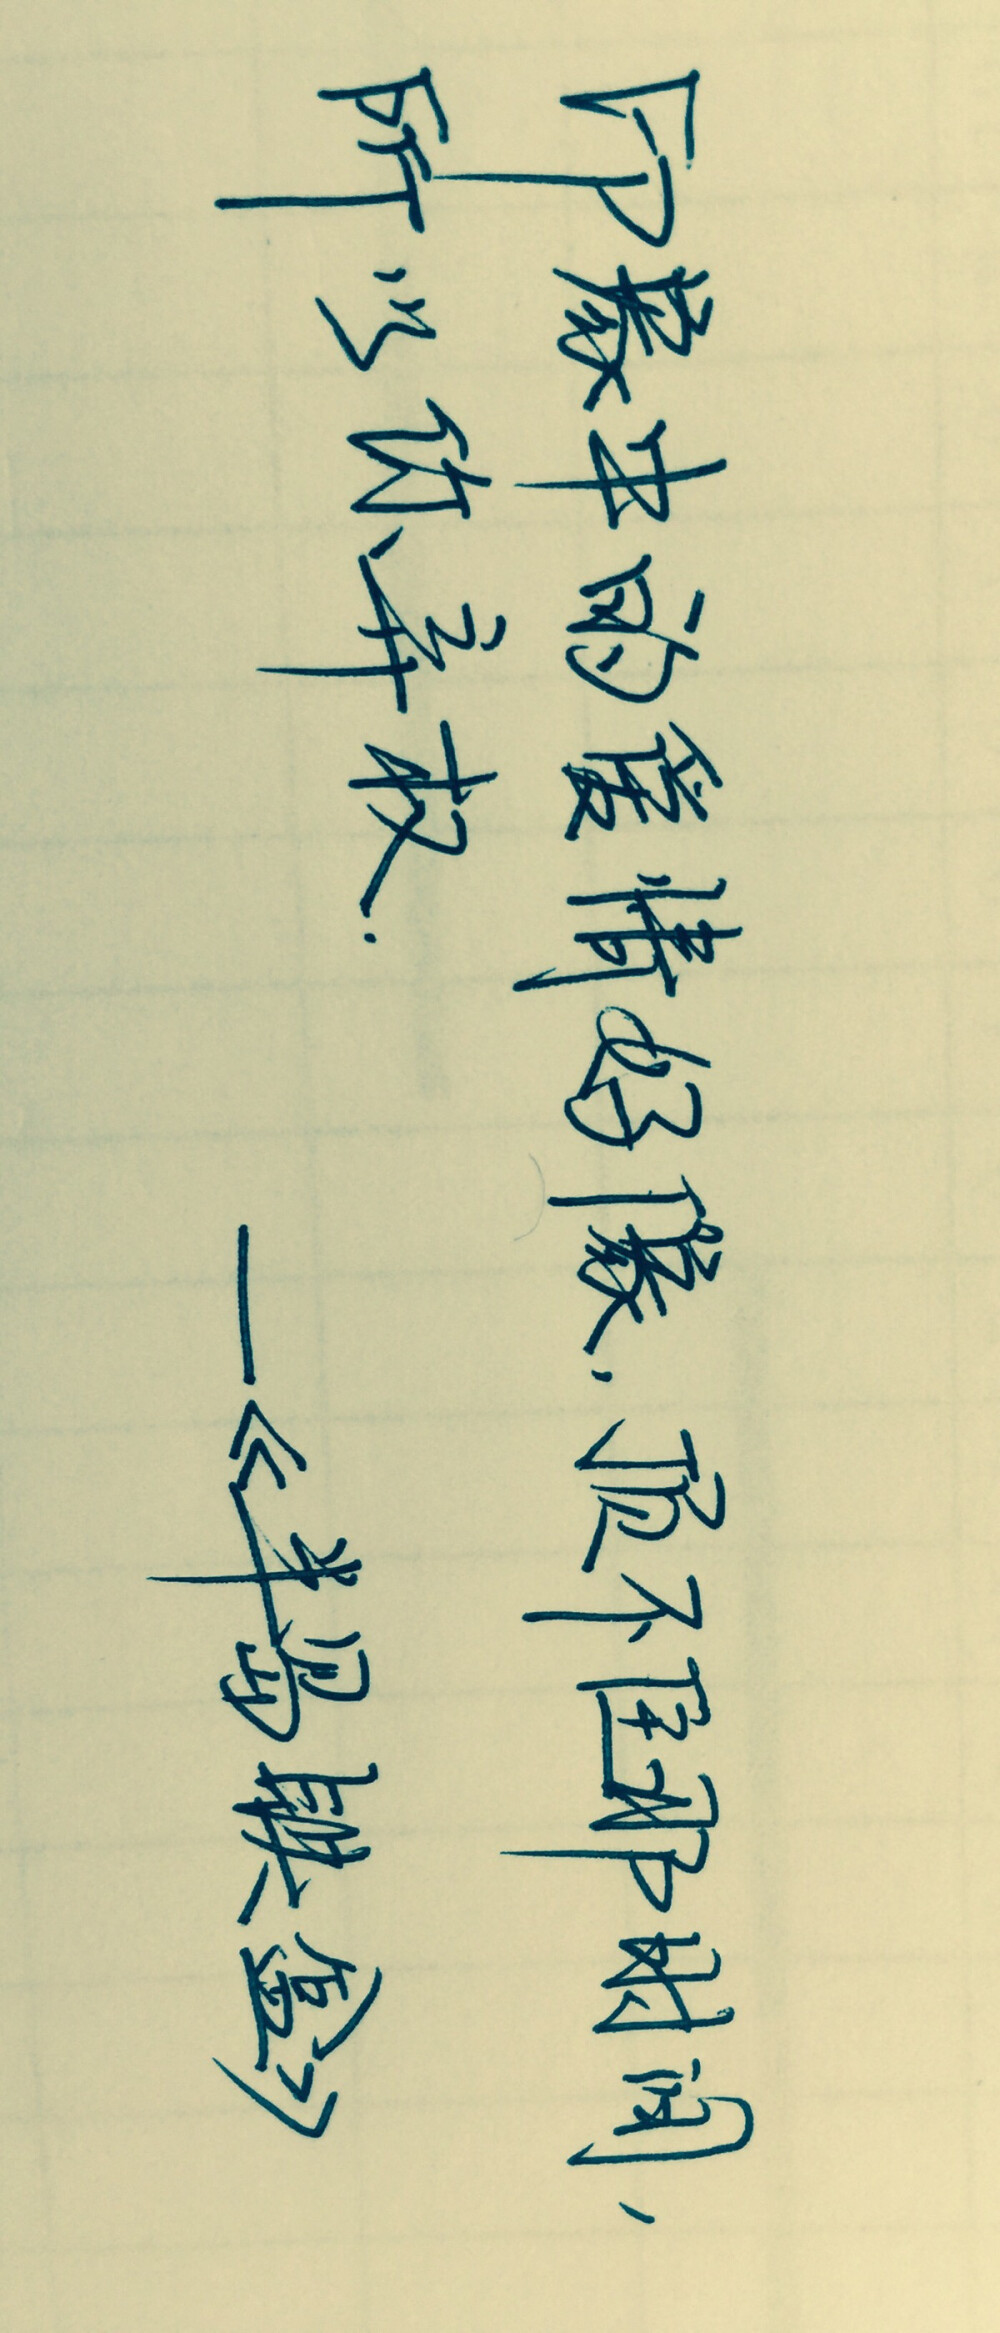 印象中的爱情好像,顶不住那时间,
所以你弃权.
—《半岛铁盒》